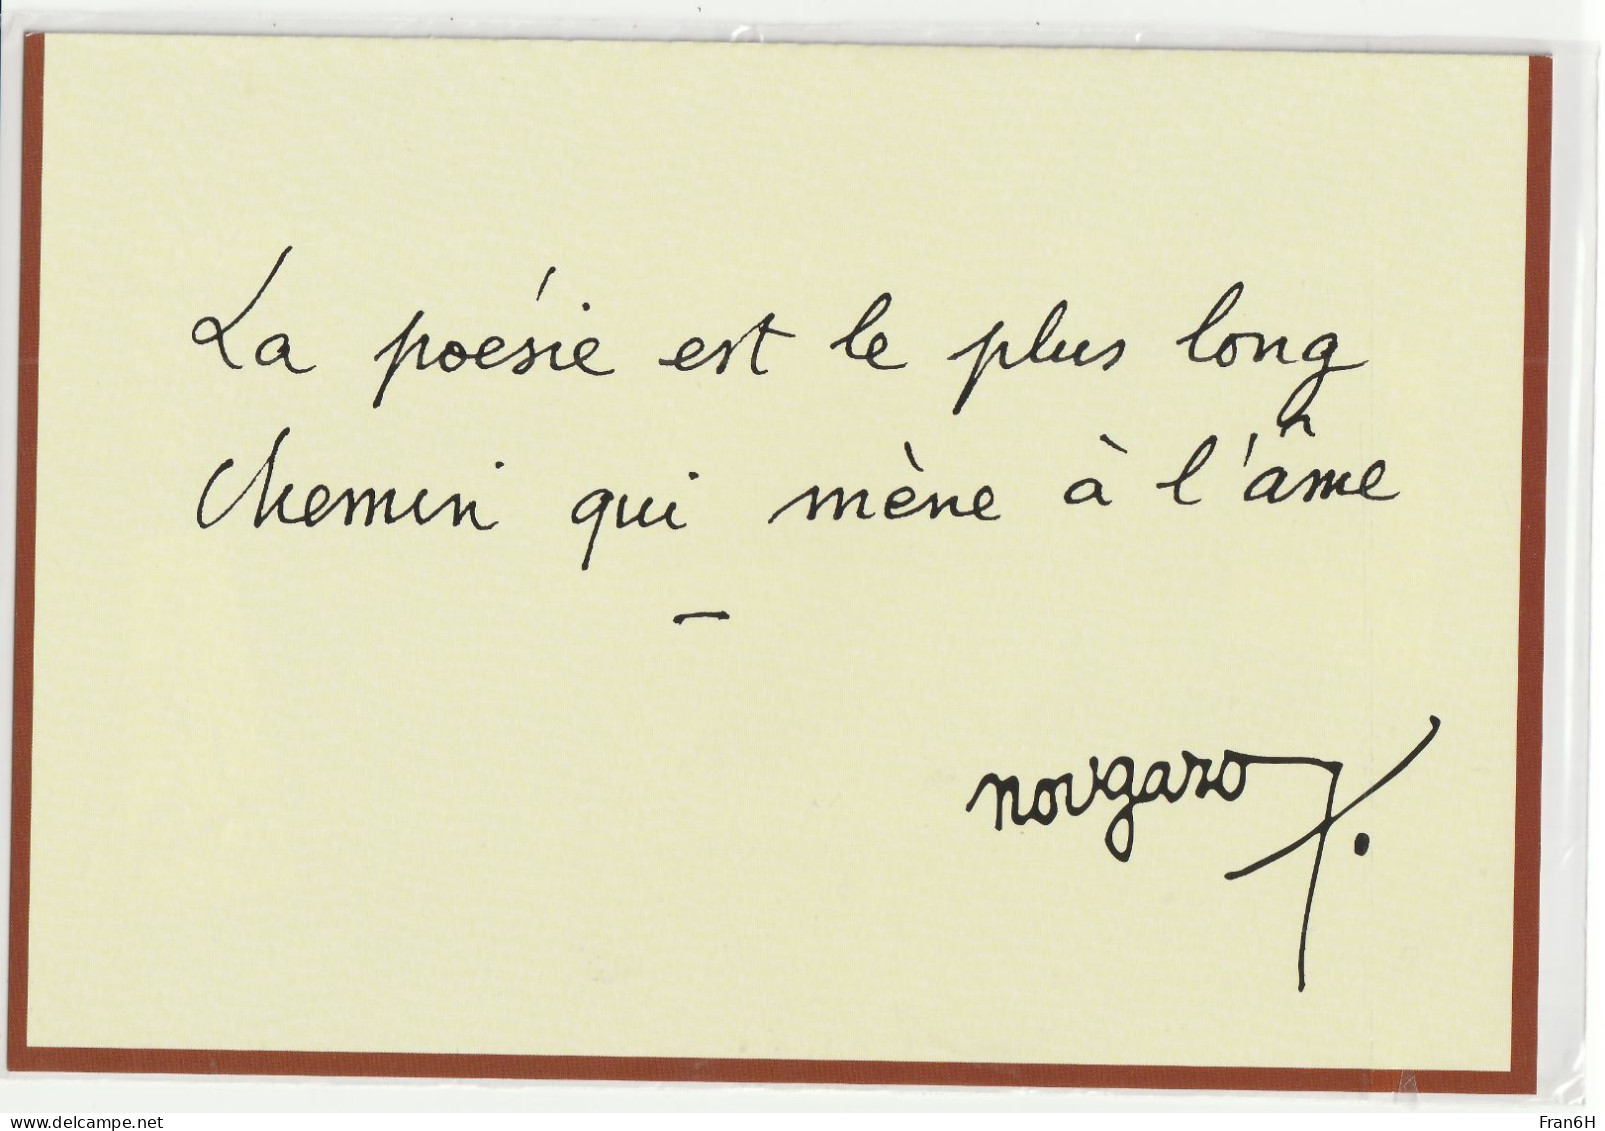 La poésie est le plus long
chemin qui mène à l'âme
—
nougaro.
delcampe.net
Fran6H